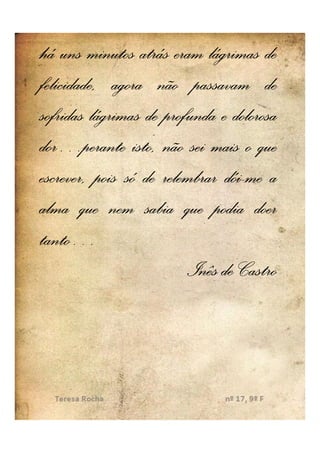 há uns minutos atrás eram lágrimas de
felicidade, agora não passavam de
sofridas lágrimas de profunda e dolorosa
dor. . .perante isto, não sei mais o que
escrever, pois só de relembrar dói-me a
alma que nem sabia que podia doer
tanto. . .
Inês de Castro
Teresa Rocha nº 17, 9º F